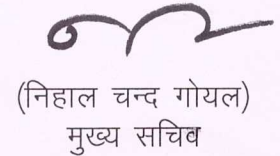 (निहाल चन्द गोयल)
मुख्य सचिव